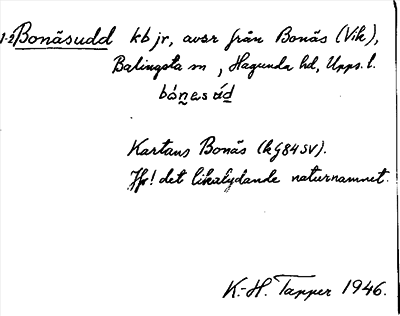 1-2 Bonäsudd kb jr, avser från Bonäs (Vik),
Balingsta sn, Hagunda hd, Upps. l.
bónesúd
Kartans Bonäs (kg84SV).
Jfr! det likalydande naturnamnet.
K.-H. Tapper 1946.